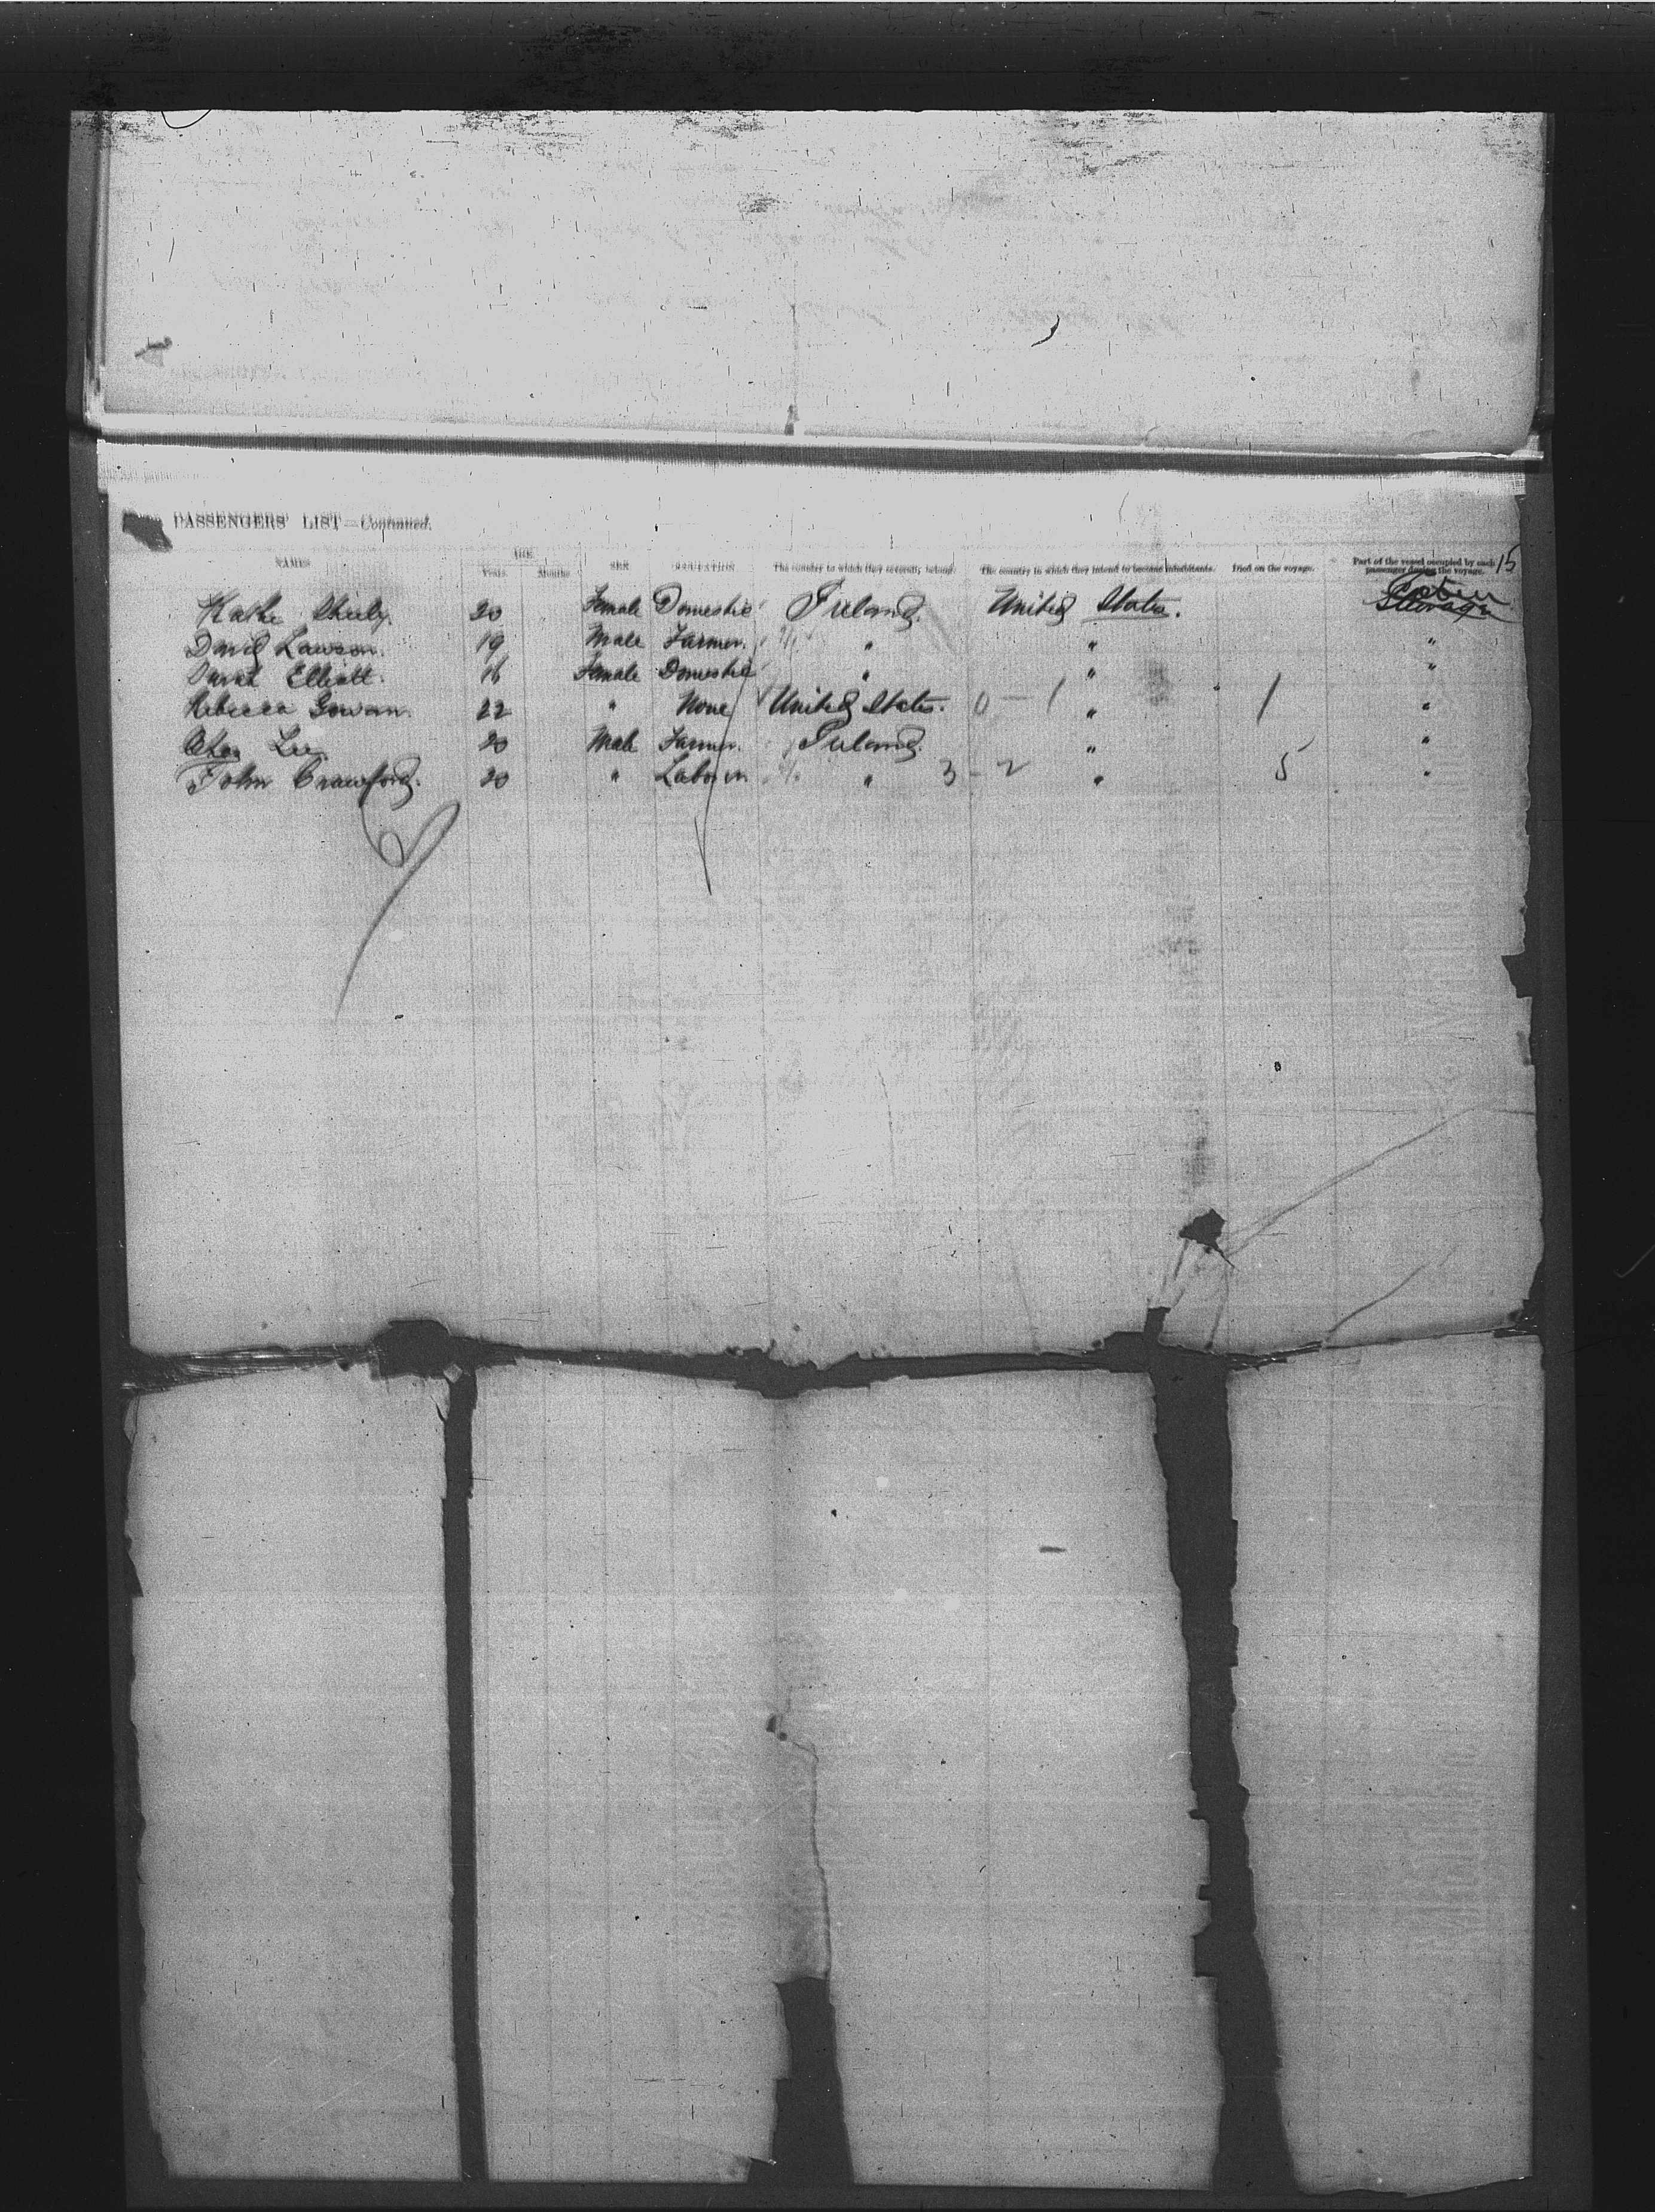 15
PASSENGERS' LIST—Continued.
NAMES AGE Years. Months. SEX OCCUPATION The country to which they severally belong. The country in which they intend to become inhabitants. Died on the voyage. Part of the vessel occupied by each passenger during the voyage.
Katie 20 Female Domestic Ireland. United States. Steerage
David Lawson. 19 Male Farmer. " " "
Sarah Elliott. 16 Female Domestic " " "
Rebecca Gowan. 22 " None United States. 0 - 1 " 1 "
Lee 20 Male Farmer. Ireland. " "
John Crawford. 20 " Laborer " 3 - 2 " 5 "